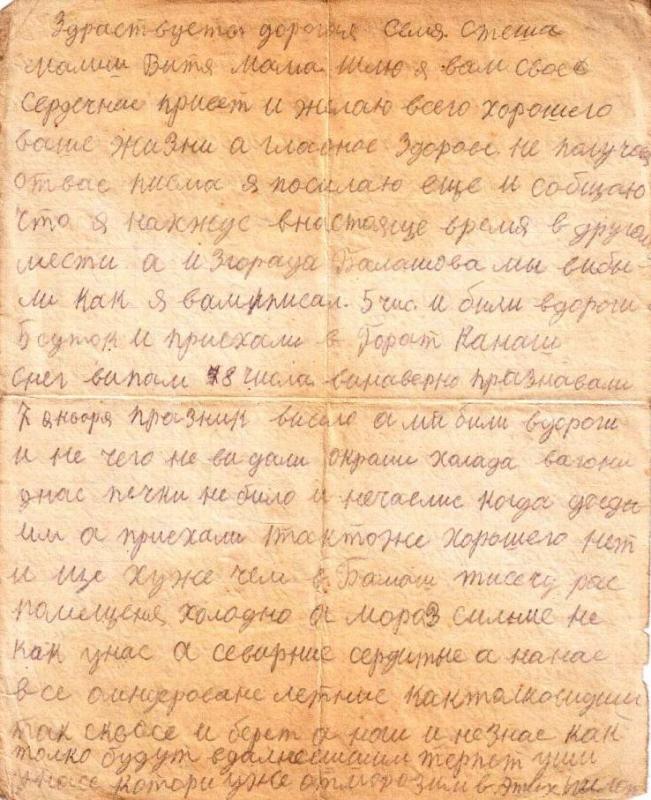 Здраствуєте дорогая семя Стеша
Малиш Витя мама шлю я вам своє
сердечнає привет и желаю всего хорошего
ваше жизни а главноє здоровє не получая
отвас писма я посилаю еще и собщаю
что я нахжус внастояще время в другом
мести а изгорада Балашова ми виби-
ли как я вам писал. 5 чис. и били вдороги
5 суток и приєхали в Горат Канаш
снег випал 8 числа винаверно празнавали
7 января празник висило а ми били вдороги
и не чего не видали окроми холада вагони
унас печки не било и нечаелис когда доєди
им а приєхали так тоже хорошего нет
и ище хуже чем в Балаш тисечу рас
памещеня холодно а мораз сильние не
как унас а севирние сердитые а нанас
все летние как толко видиш
так сквосе и берет а наш и незнає как
толко будут вдалнейшим терпет уши
унасе котори уже отморозили в этих